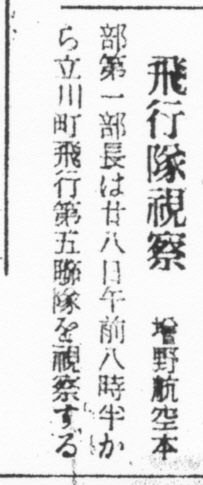 飛行隊視察　増野航空本
部第一部長は廿八日午前八時半か
ら立川町飛行第五聯隊を視察する